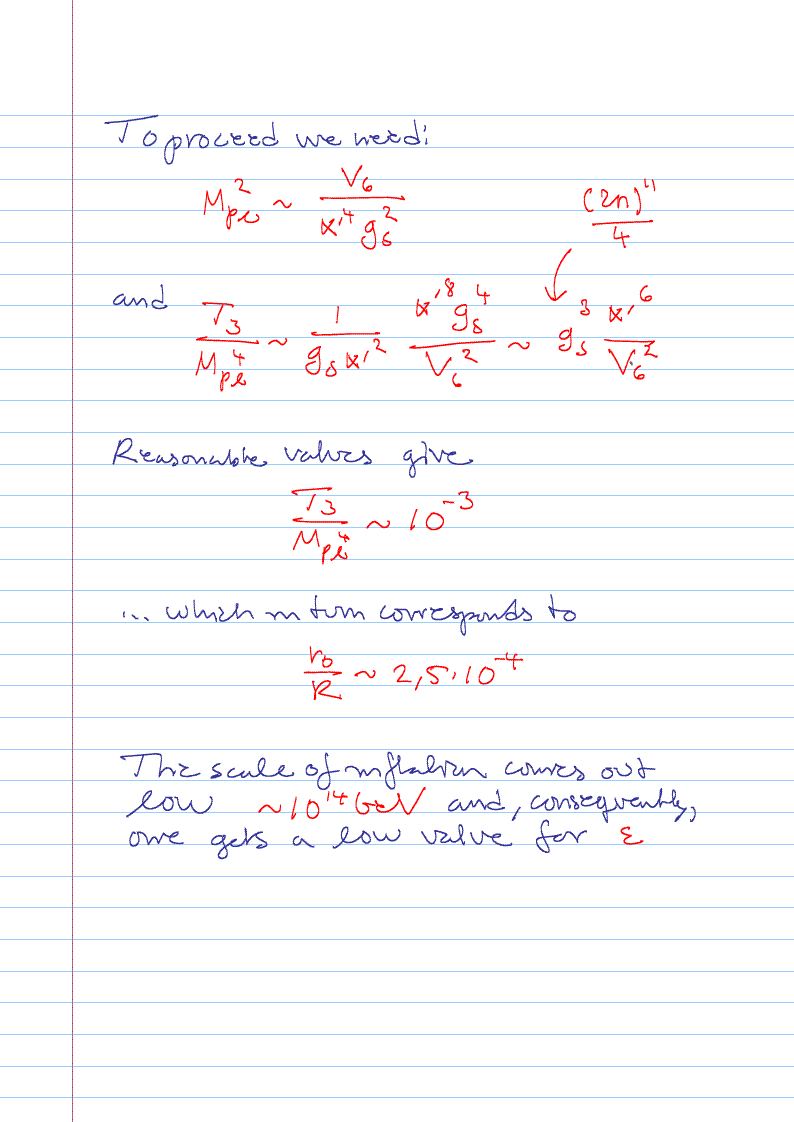 To proceed we need:
M_pl^2 ~ V_6 / (α'^4 g_s^2)
(2π)^11 / 4
and T_3 / M_pl^4 ~ 1 / (g_s α'^2) α'^8 g_s^4 / V_6^2 ~ g_s^3 α'^6 / V_6^2
Reasonable values give
T_3 / M_pl^4 ~ 10^-3
... which in turn corresponds to
r_0 / R ~ 2,5·10^-4
The scale of inflation comes out
low ~10^14 GeV and, consequently,
one gets a low value for ε